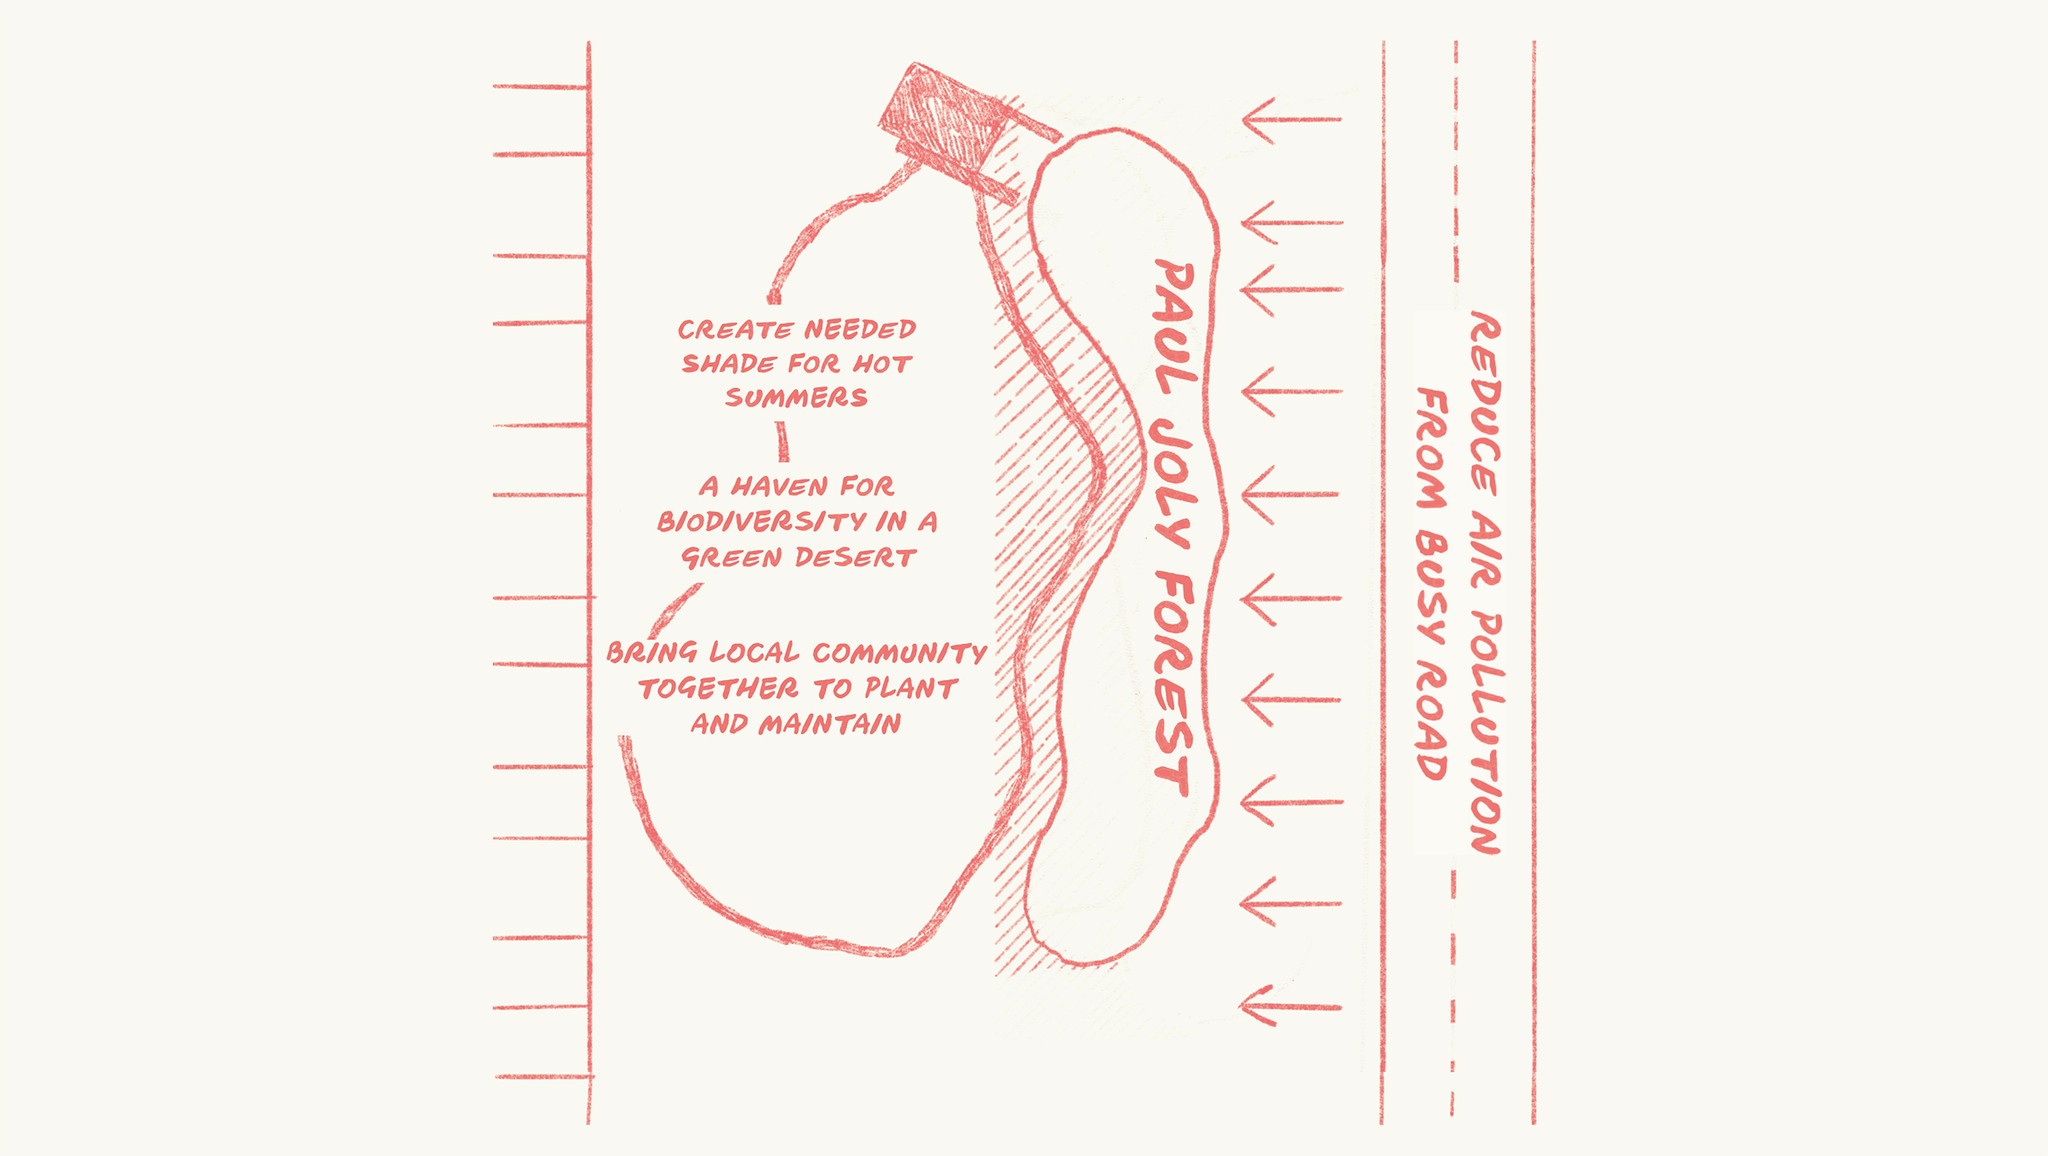 CREATE NEEDED
SHADE FOR HOT
SUMMERS
A HAVEN FOR
BIODIVERSITY IN A
GREEN DESERT
BRING LOCAL COMMUNITY
TOGETHER TO PLANT
AND MAINTAIN
PAUL JOLY FOREST
REDUCE AIR POLLUTION
FROM BUSY ROAD